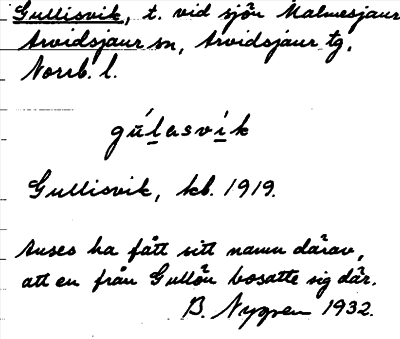 Gullisvik, t. vid sjön Malmesjaur
Arvidsjaur sn, Arvidsjaur tg.
Norrb. l.
gúlasvík
Gullisvik, kb. 1919.
Anses ha fått sitt namn därav,
att en från Gullön bosatte sig där.
B. Nygren 1932.